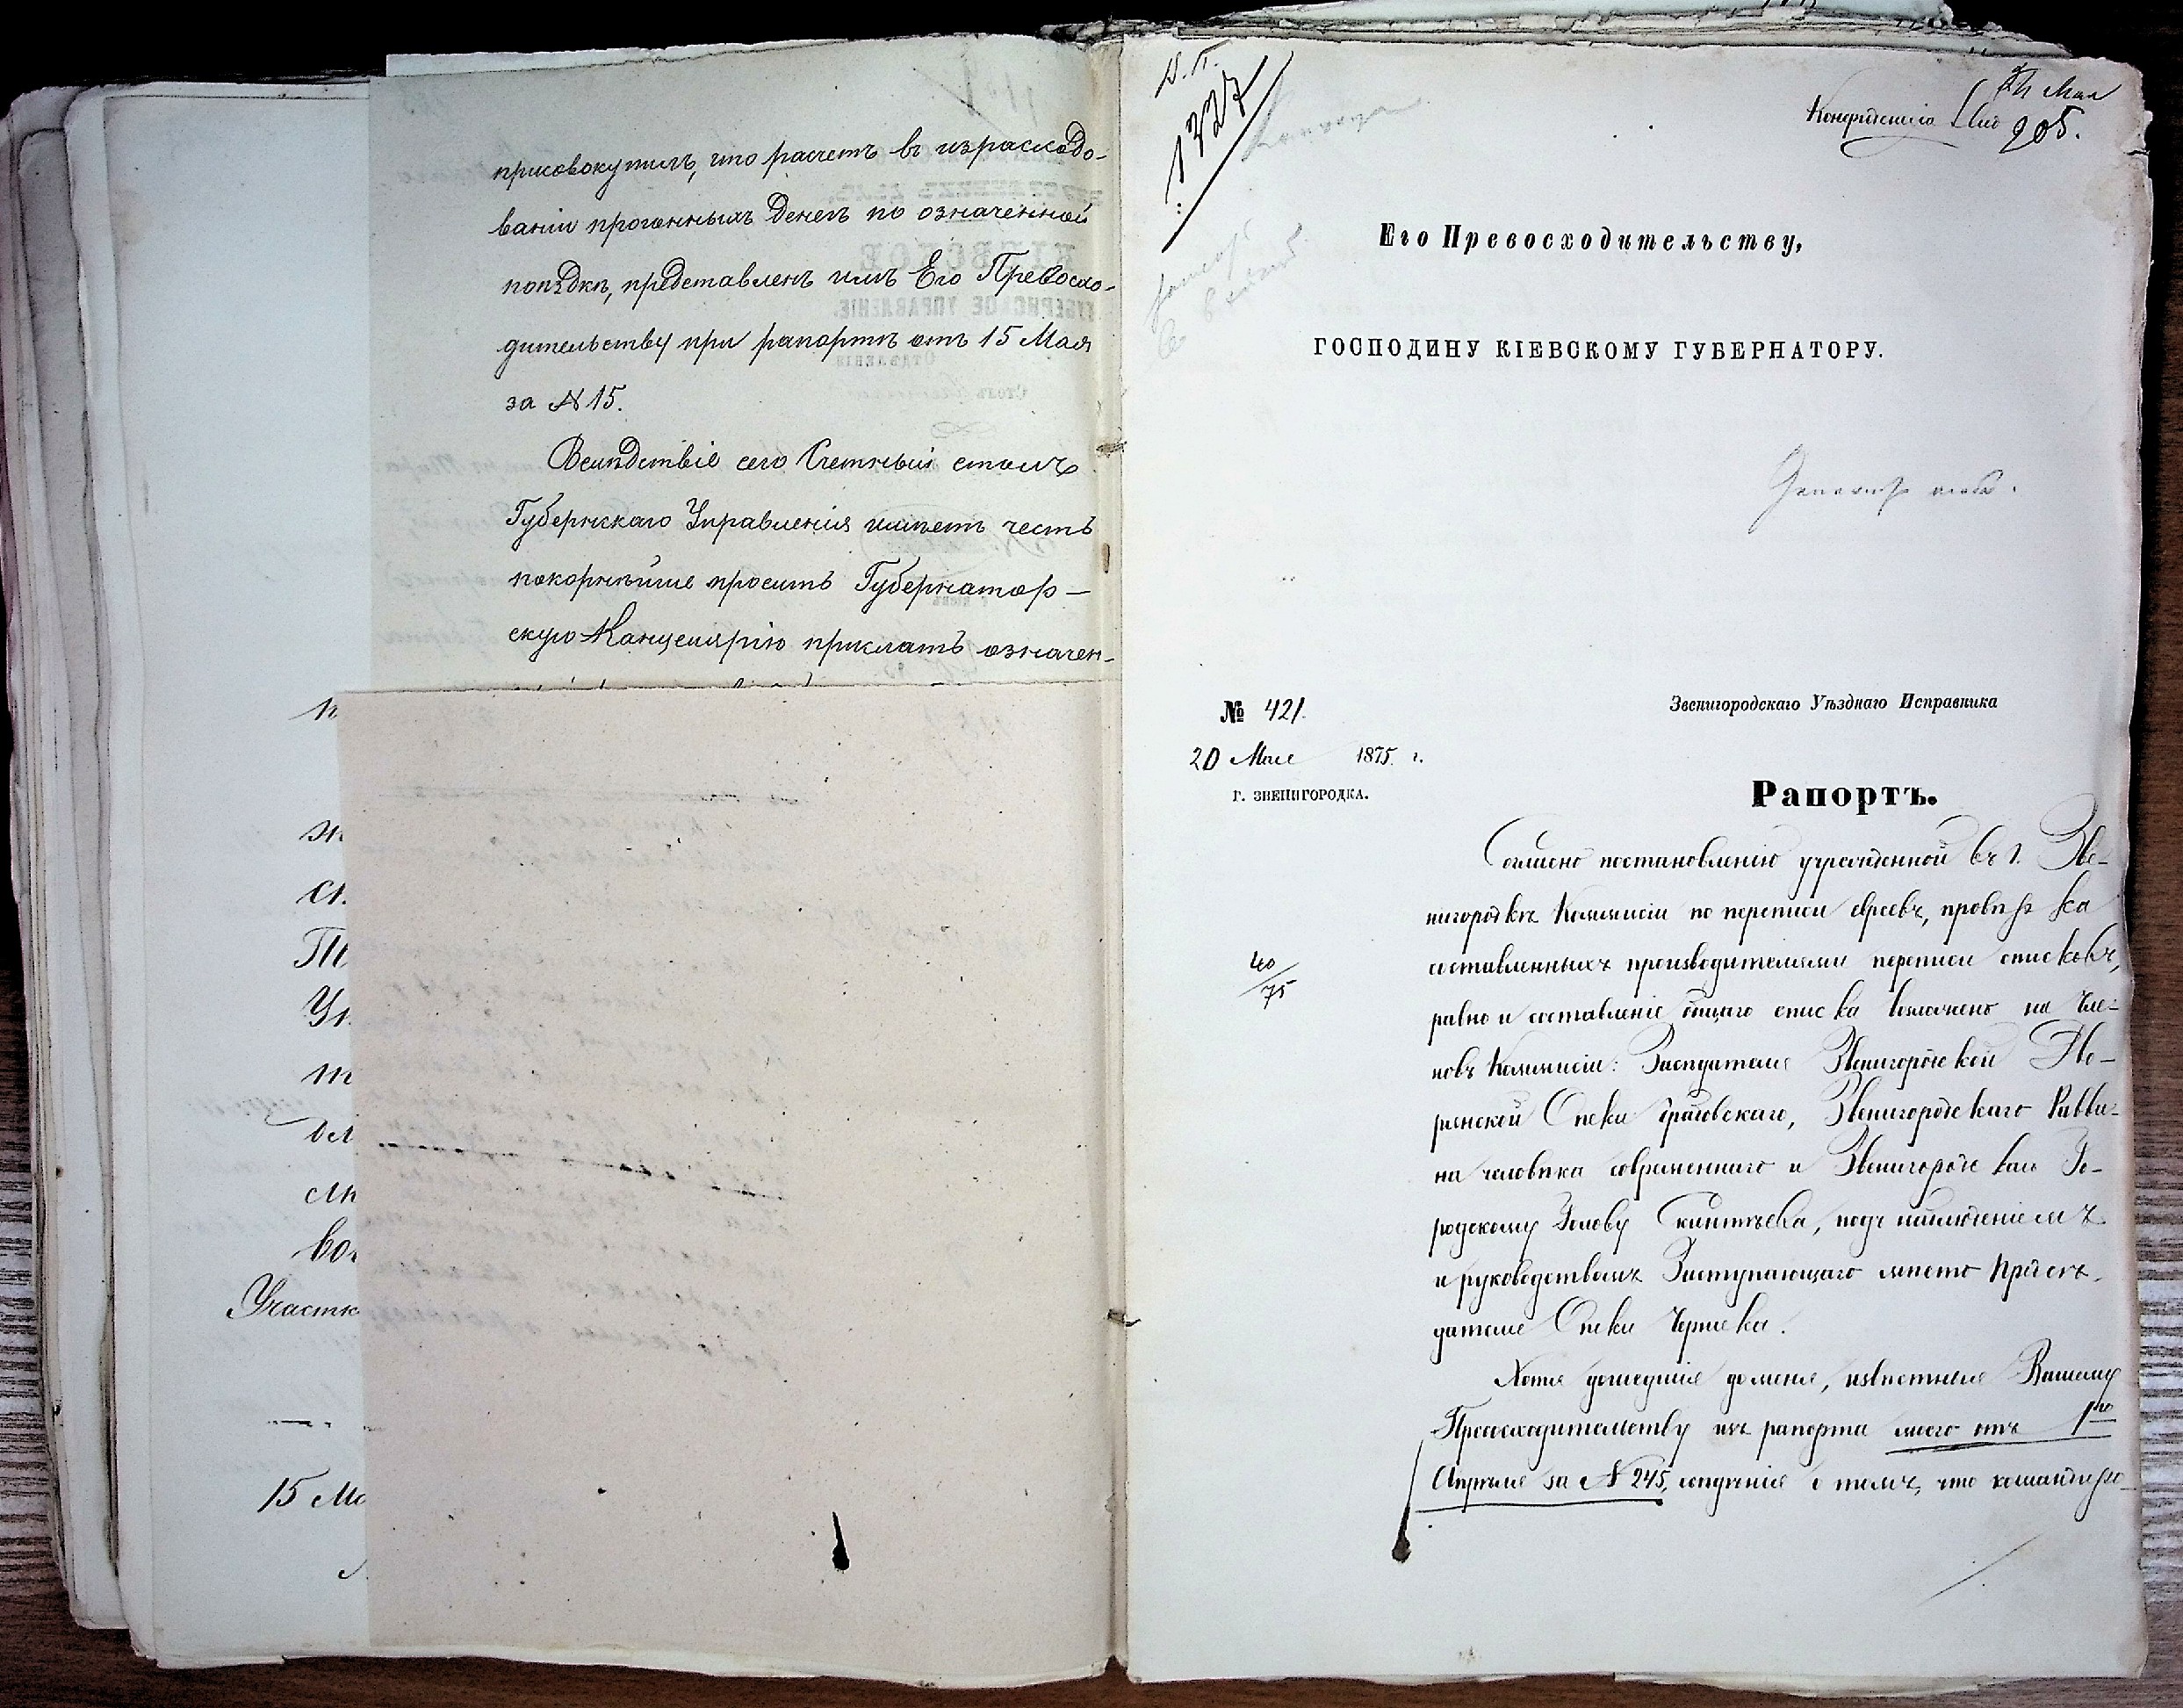 присовокупилъ, что расчетъ въ израсходо-
ваніи прогонныхъ денегъ по означенной
поѣздкѣ, представленъ имъ Его Превосхо-
дительству при рапортѣ отъ 15 Мая
за № 15.
Вслѣдствіе сего Счетный столъ
Губернскаго Управленія имѣетъ честь
покорнѣйше проситъ Губернатор-
скую Канцелярію прислать означен-
Участк
15 Ма
1327
Мая
205.
Его Превосходительству,
ГОСПОДИНУ КІЕВСКОМУ ГУБЕРНАТОРУ.
№ 421.
20 Мая 1875 г.
Г. ЗВЕНИГОРОДКА.
40/75
Звенигородскаго Уѣзднаго Исправника
Рапортъ.
Согласно постановленію учрежденной въ г. Зве-
нигородкѣ Коммисіи по переписи евреевъ, провѣрка
составленныхъ производителями переписи списковъ,
равно и составленіе общаго списка возложено на Чле-
новъ Коммисіи: Засѣдателя Звенигородской Дво-
рянской Опеки, Звенигородскаго Равви-
на человѣка современнаго и Звенигородскаго Го-
родскому Голову, подъ наблюденіемъ
и руководствомъ Заступающаго мѣсто Предсѣ-
дателя Опеки
Хотя дошедшія до меня, извѣстныя Вашему
Превосходительству изъ рапорта моего отъ 1го
Апрѣля за № 245, свѣдѣнія о томъ, что командиро-